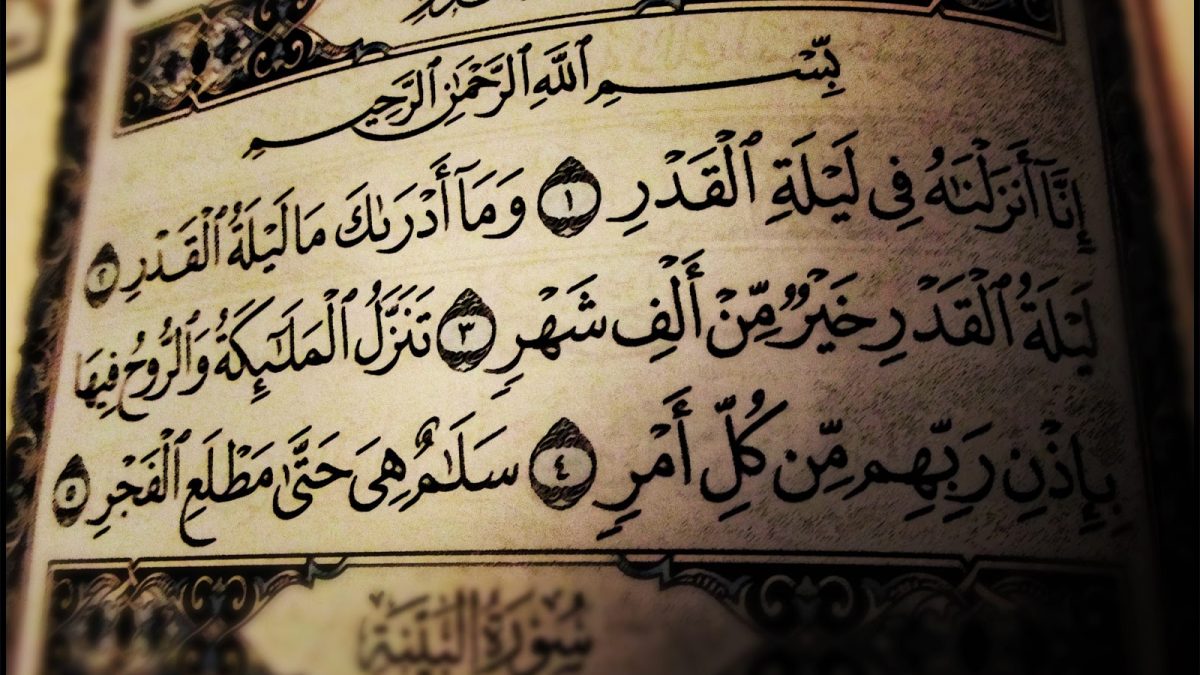 بِسْمِ ٱللَّهِ ٱلرَّحْمَٰنِ ٱلرَّحِيمِ
إِنَّآ أَنزَلْنَٰهُ فِى لَيْلَةِ ٱلْقَدْرِ ١ وَمَآ أَدْرَىٰكَ مَا لَيْلَةُ ٱلْقَدْرِ ٢
لَيْلَةُ ٱلْقَدْرِ خَيْرٌ مِّنْ أَلْفِ شَهْرٍ ٣ تَنَزَّلُ ٱلْمَلَٰٓئِكَةُ وَٱلرُّوحُ فِيهَا
بِإِذْنِ رَبِّهِم مِّن كُلِّ أَمْرٍ ٤ سَلَٰمٌ هِىَ حَتَّىٰ مَطْلَعِ ٱلْفَجْرِ ٥
سُورَةُ البَيِّنَةِ